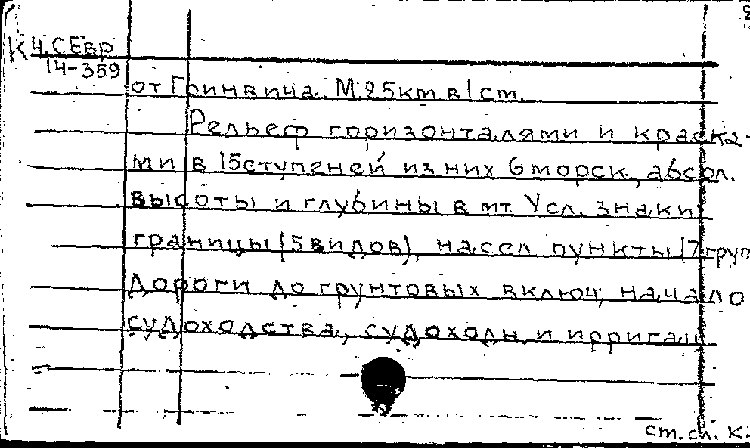 К 4. СЕвр
14-359
от Гринвича. М. 25 км в 1 ст.
Рельеф горизонталями и краска-
ми в 15 ступеней из них 6 морск., абсол.
высоты и глубины в мт. Усл. знаки
границы (5 видов), насел пункты (7 груп
дороги до грунтовых включ, начало
судоходства, судоходн. и ирригац
ст. сл. к.